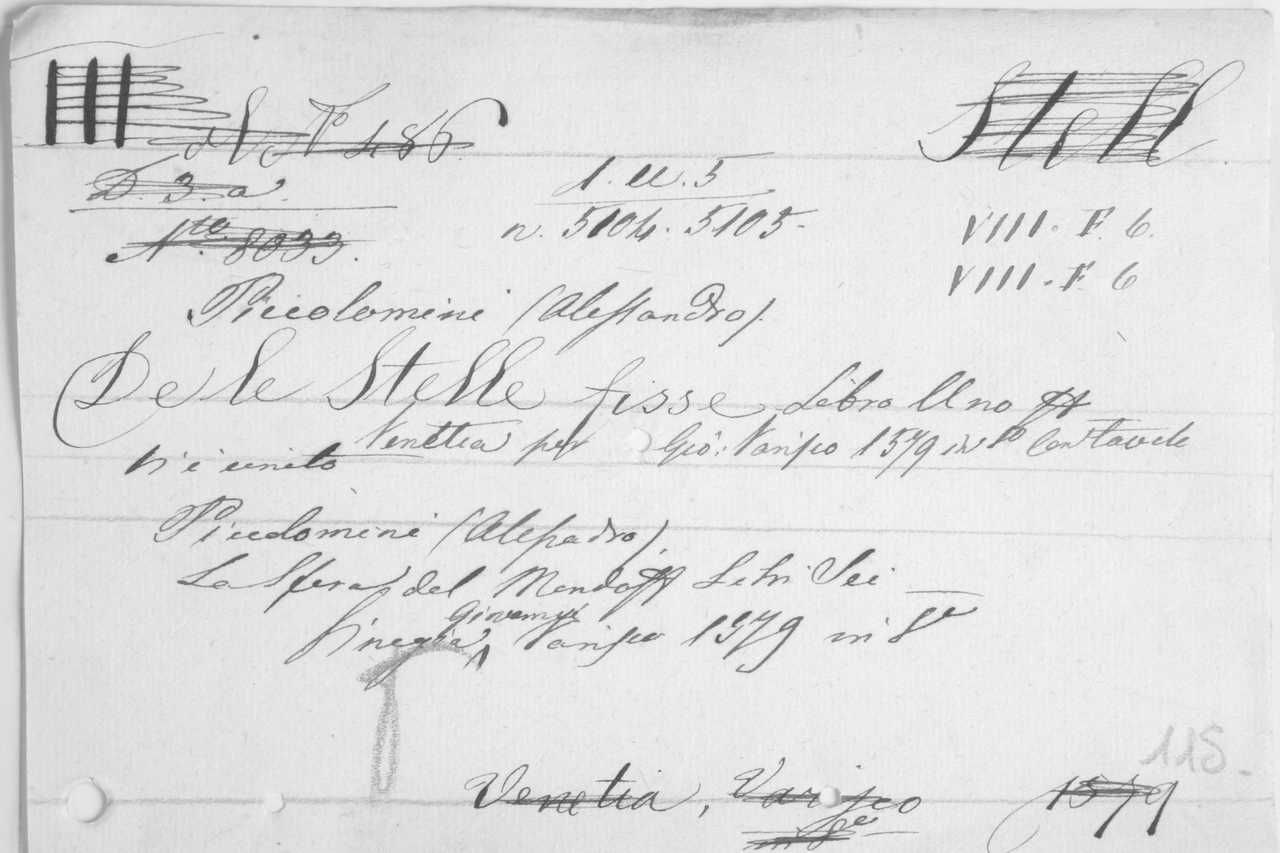 III N.ro 486 Stell
D. 3. a. 1. U. 5
N.ro 8033. n. 5104. 5105. VIII. F. 6.
VIII. F. 6
Piccolomini (Alessandro).
De le Stelle fisse Libro Uno
Venetia per Gio: Varisco 1579 in Con tavole
Vi è unito
Piccolomini (Alessadro).
La Sfera del Mondo Libri Sei
Vinegia, Giovanni Varisco 1579 in 8°
115.
Venetia, Varisco 1579
in 8°